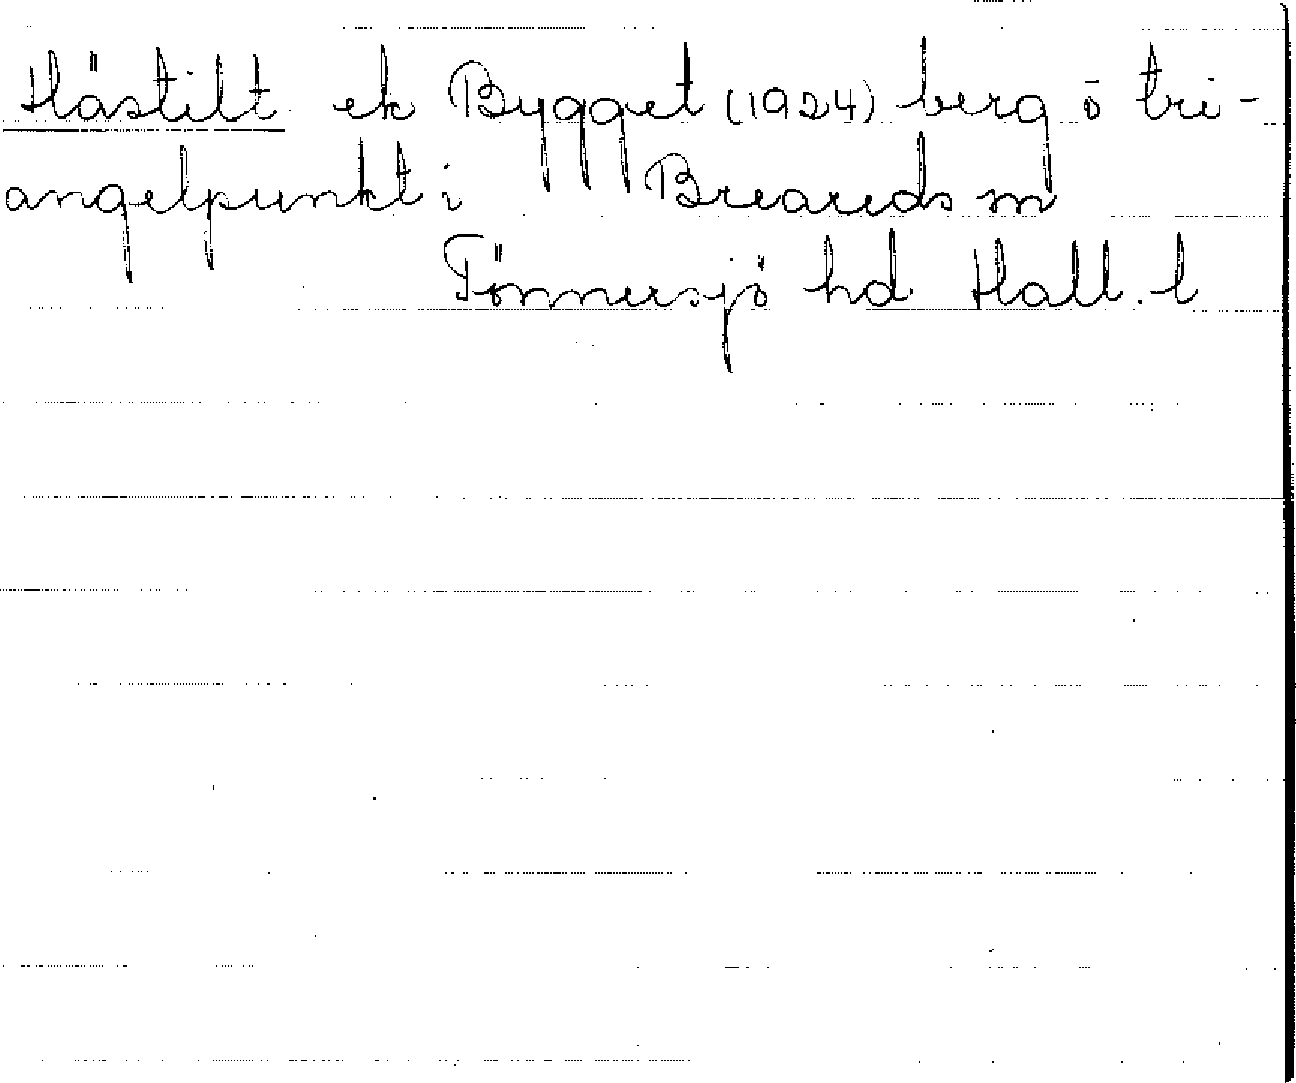 Hästilt ek Bygget (1924) berg o tri-
angelpunkt i Breareds sn
Tönnersjö hd Hall. l